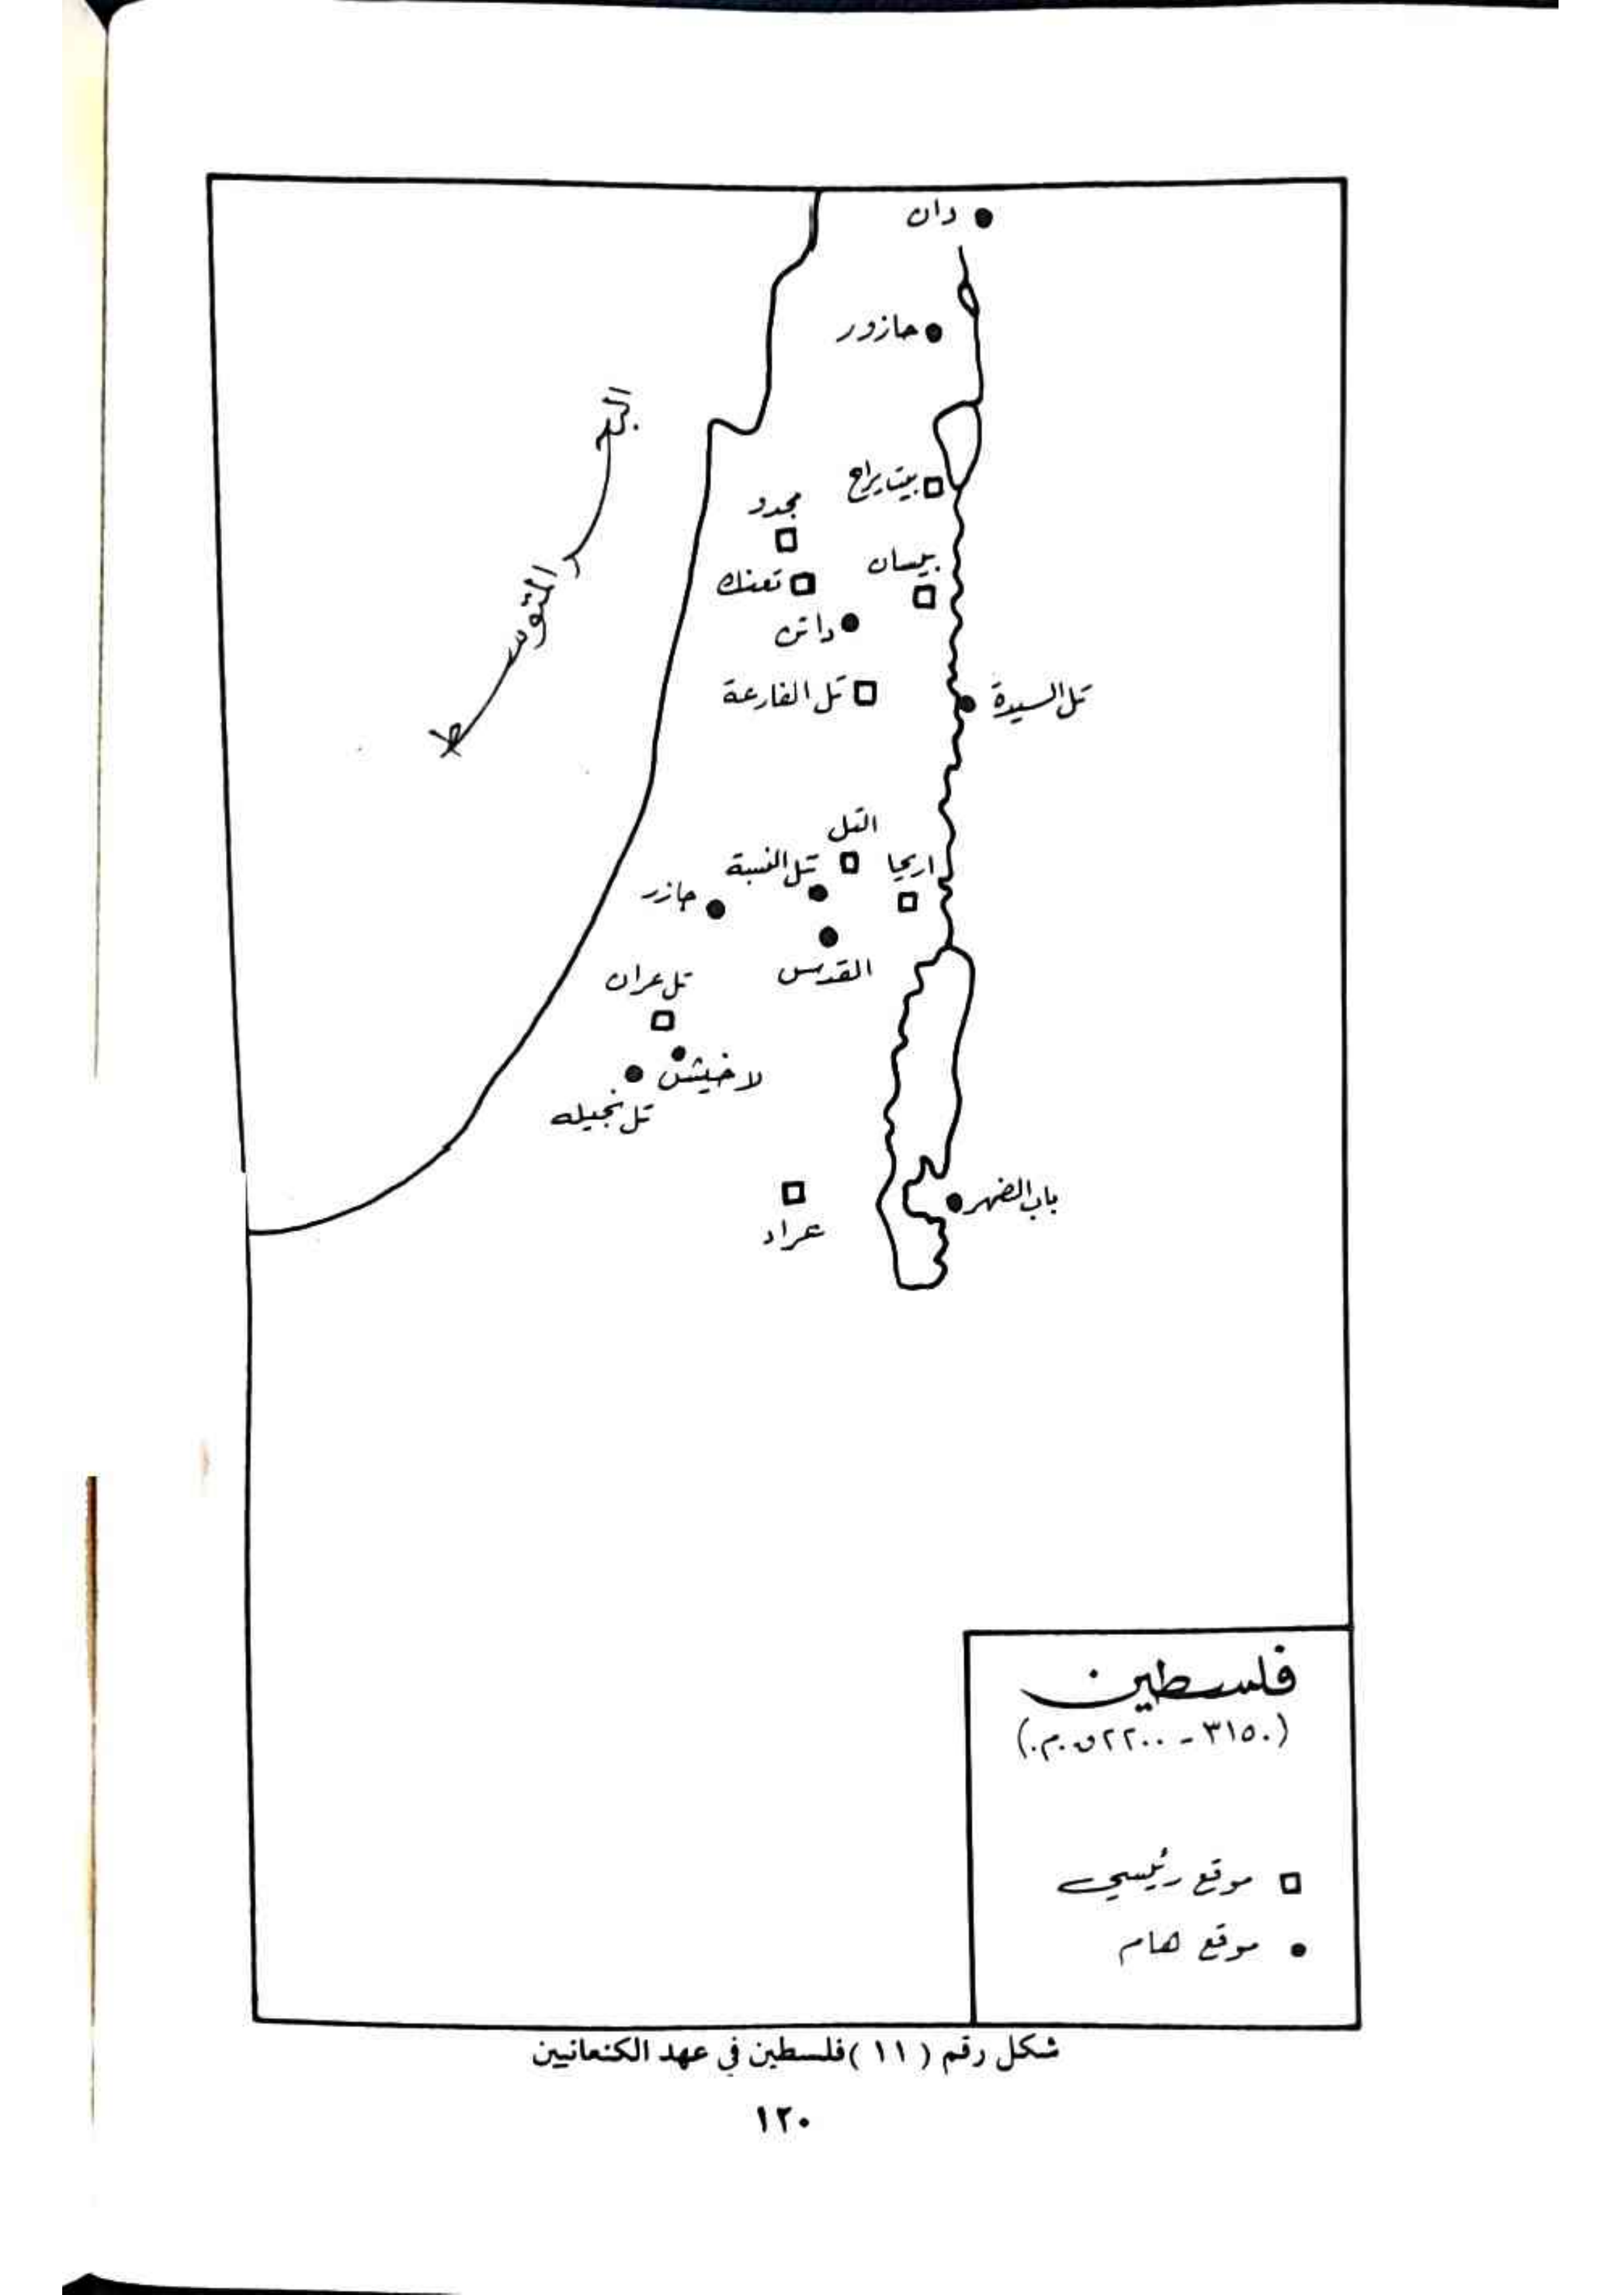 دان
حازور
البحر المتوسط
بيت يراح
مجدو
بيسان
تعنك
داثن
تل الفارعة
تل السيدة
التل
اريحا
تل النسبة
جازر
القدس
تل عران
لاخيش
تل نجيله
باب الضهر
عراد
فلسطين
(٣١٥٠ - ٢٢٠٠ ق.م.)
موقع رئيسي
موقع هام
شكل رقم ( ١١ ) فلسطين في عهد الكنعانيين
١٢٠